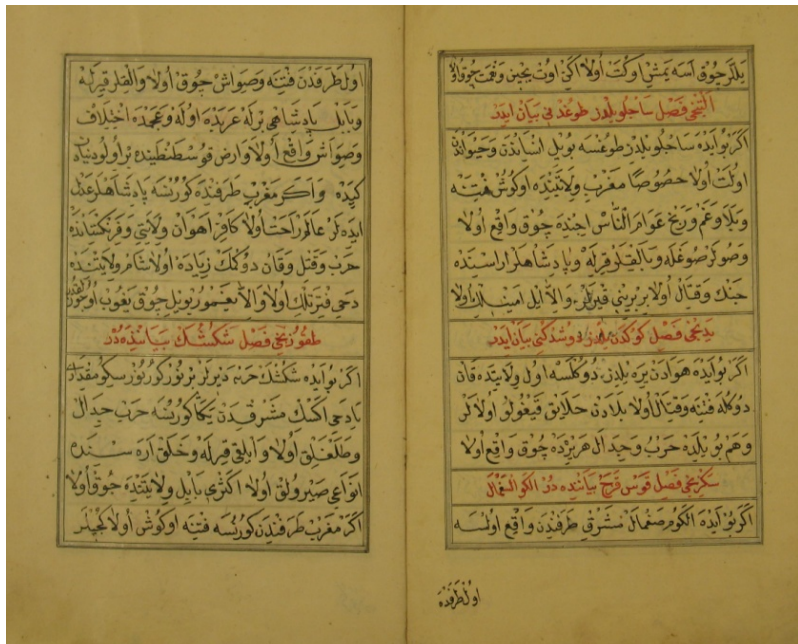 يللر چوق اسه يمش اوكت اولا اكن اوت يجين ونعمت چوق اولا
التنجی فصل ساچلو يلدز طوغدغی بيان ايدر
اگر بو آيده ساچلو يلدز طوغسه بو يل انساندن وحيواندن
اولت اولا خصوصا مغرب ولايتنده اوكوش فتنه
وبلا وغم ورنج عوام الناس ايچنده چوق واقع اولا
وصوكر صوغله وبالقلر قرله وپادشاهلر اراسنده
جنك وقتال اولا بربرينی قيرلر والا ايل امينلك اولا
يدنجی فصل كوكدن يلدز دوشدكنی بيان ايدر
اگر بو آيده هوادن يره يلدز دوكلسه اول ولايتده قان
دوكله فتنه وقتال اولا بلادن خلايق قيغولو اولالر
وهم بو يلده حرب وجدال هر يرده چوق واقع اولا
سكزنجی فصل قوس قزح بياننده در
اگر بو آيده الكوم صغمال مشرق طرفندن واقع اولسه
اول طرفده
اول طرفدن فتنه وصواش چوق اولا وبالقلر قيرله
وبابل پادشاهی برله عربده اوله وعجمده اختلاف
وصواش واقع اولا وارض قوسطنطينده بر اولو دنيادن
كيده واكر مغرب طرفنده كورنسه پادشاهلر عدل
ايده لر عالم راحت اولا كافر اهوان ولايتی وفرنكستانده
حرب وقتل وقان دوكمك زياده اولا شام ولايتنده
دخی فترتلك اولا والا يغمور بو يل چوق يغوب اوجوزلق
طقوزنجی فصل شمشك بياننده در
اگر بو آيده
يا دخی اكسك مشرقدن يكا كورنسه حرب جدال
وطلغلق اولا وايلقی قيرله وخلق اره سنده
انواعی صيرولق اولا اكثری بابل ولايتنده چوق اولا
اگر مغرب طرفندن كورنسه فتنه اوكوش اولا